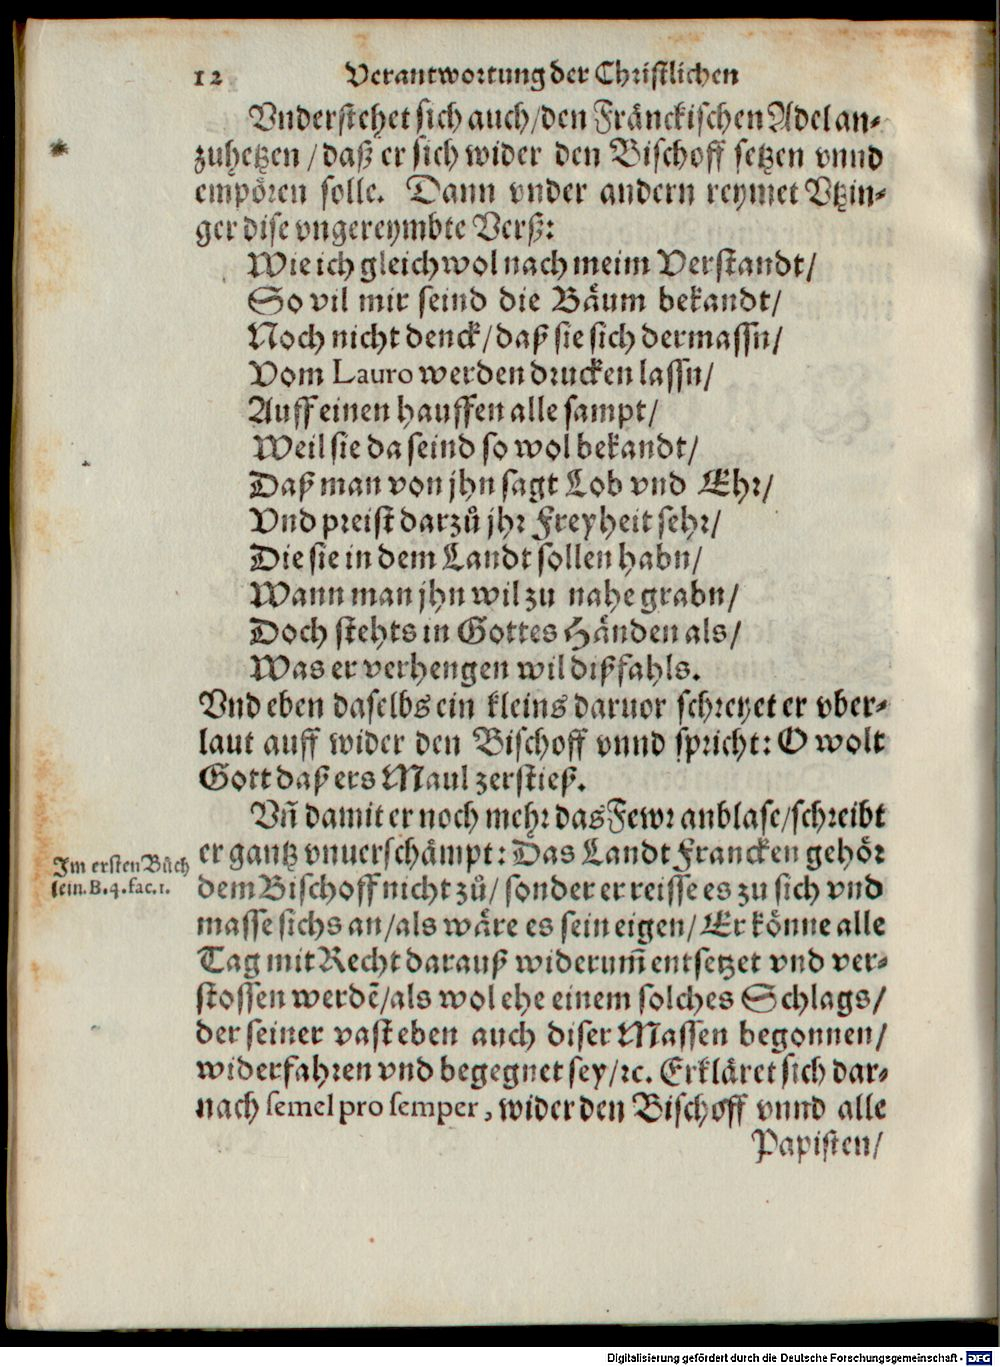 12 Verantwortung der Christlichen
Vnderstehet sich auch/den Fränckischen Adel an-
zuhetzen/daß er sich wider den Bischoff setzen vnnd
empören solle. Dann vnder andern reymet Vtzin-
ger dise vngereymbte Verß:
Wie ich gleichwol nach meim Verstandt/
So vil mir seind die Bäum bekandt/
Noch nicht denck/daß sie sich dermassn/
Vom Lauro werden drucken lassn/
Auff einen hauffen alle sampt/
Weil sie da seind so wol bekandt/
Daß man von jhn sagt Lob vnd Ehr/
Vnd preist darzů jhr Freyheit sehr/
Die sie in dem Landt sollen habn/
Wann man jhn wil zu nahe grabn/
Doch stehts in Gottes Händen als/
Was er verhengen wil dißfahls.
Vnd eben daselbs ein kleins daruor schreyet er vber-
laut auff wider den Bischoff vnnd spricht: O wolt
Gott daß ers Maul zerstieß.
Vñ damit er noch mehr das Fewr anblase/schreibt
er gantz vnuerschämpt: Das Landt Francken gehör
dem Bischoff nicht zů/ sonder er reisse es zu sich vnd
masse sichs an/als wäre es sein eigen/ Er könne alle
Tag mit Recht darauß widerum̃ entsetzet vnd ver-
stossen werdẽ/als wol ehe einem solches Schlags/
der seiner vast eben auch diser Massen begonnen/
widerfahren vnd begegnet sey/ꝛc. Erkläret sich dar-
nach semel pro semper, wider den Bischoff vnnd alle
Papisten/
Im ersten Bůch
lein. B. 4. fac. 1.
Digitalisierung gefördert durch die Deutsche Forschungsgemeinschaft - DFG